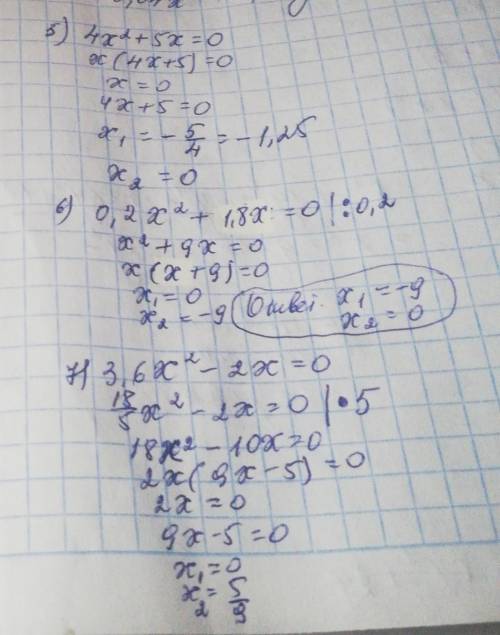 5) 4x²+5x=0
x(4x+5)=0
x=0
4x+5=0
x₁=-5/4=-1,25
x₂=0
6) 0,2x²+1,8x=0|:0,2
x²+9x=0
x(x+9)=0
x₁=0
x₂=-9
Ответ. x₁=-9
x₂=0
7) 3,6x²-2x=0
18/5x²-2x=0|•5
18x²-10x=0
2x(9x-5)=0
2x=0
9x-5=0
x₁=0
x₂=5/9